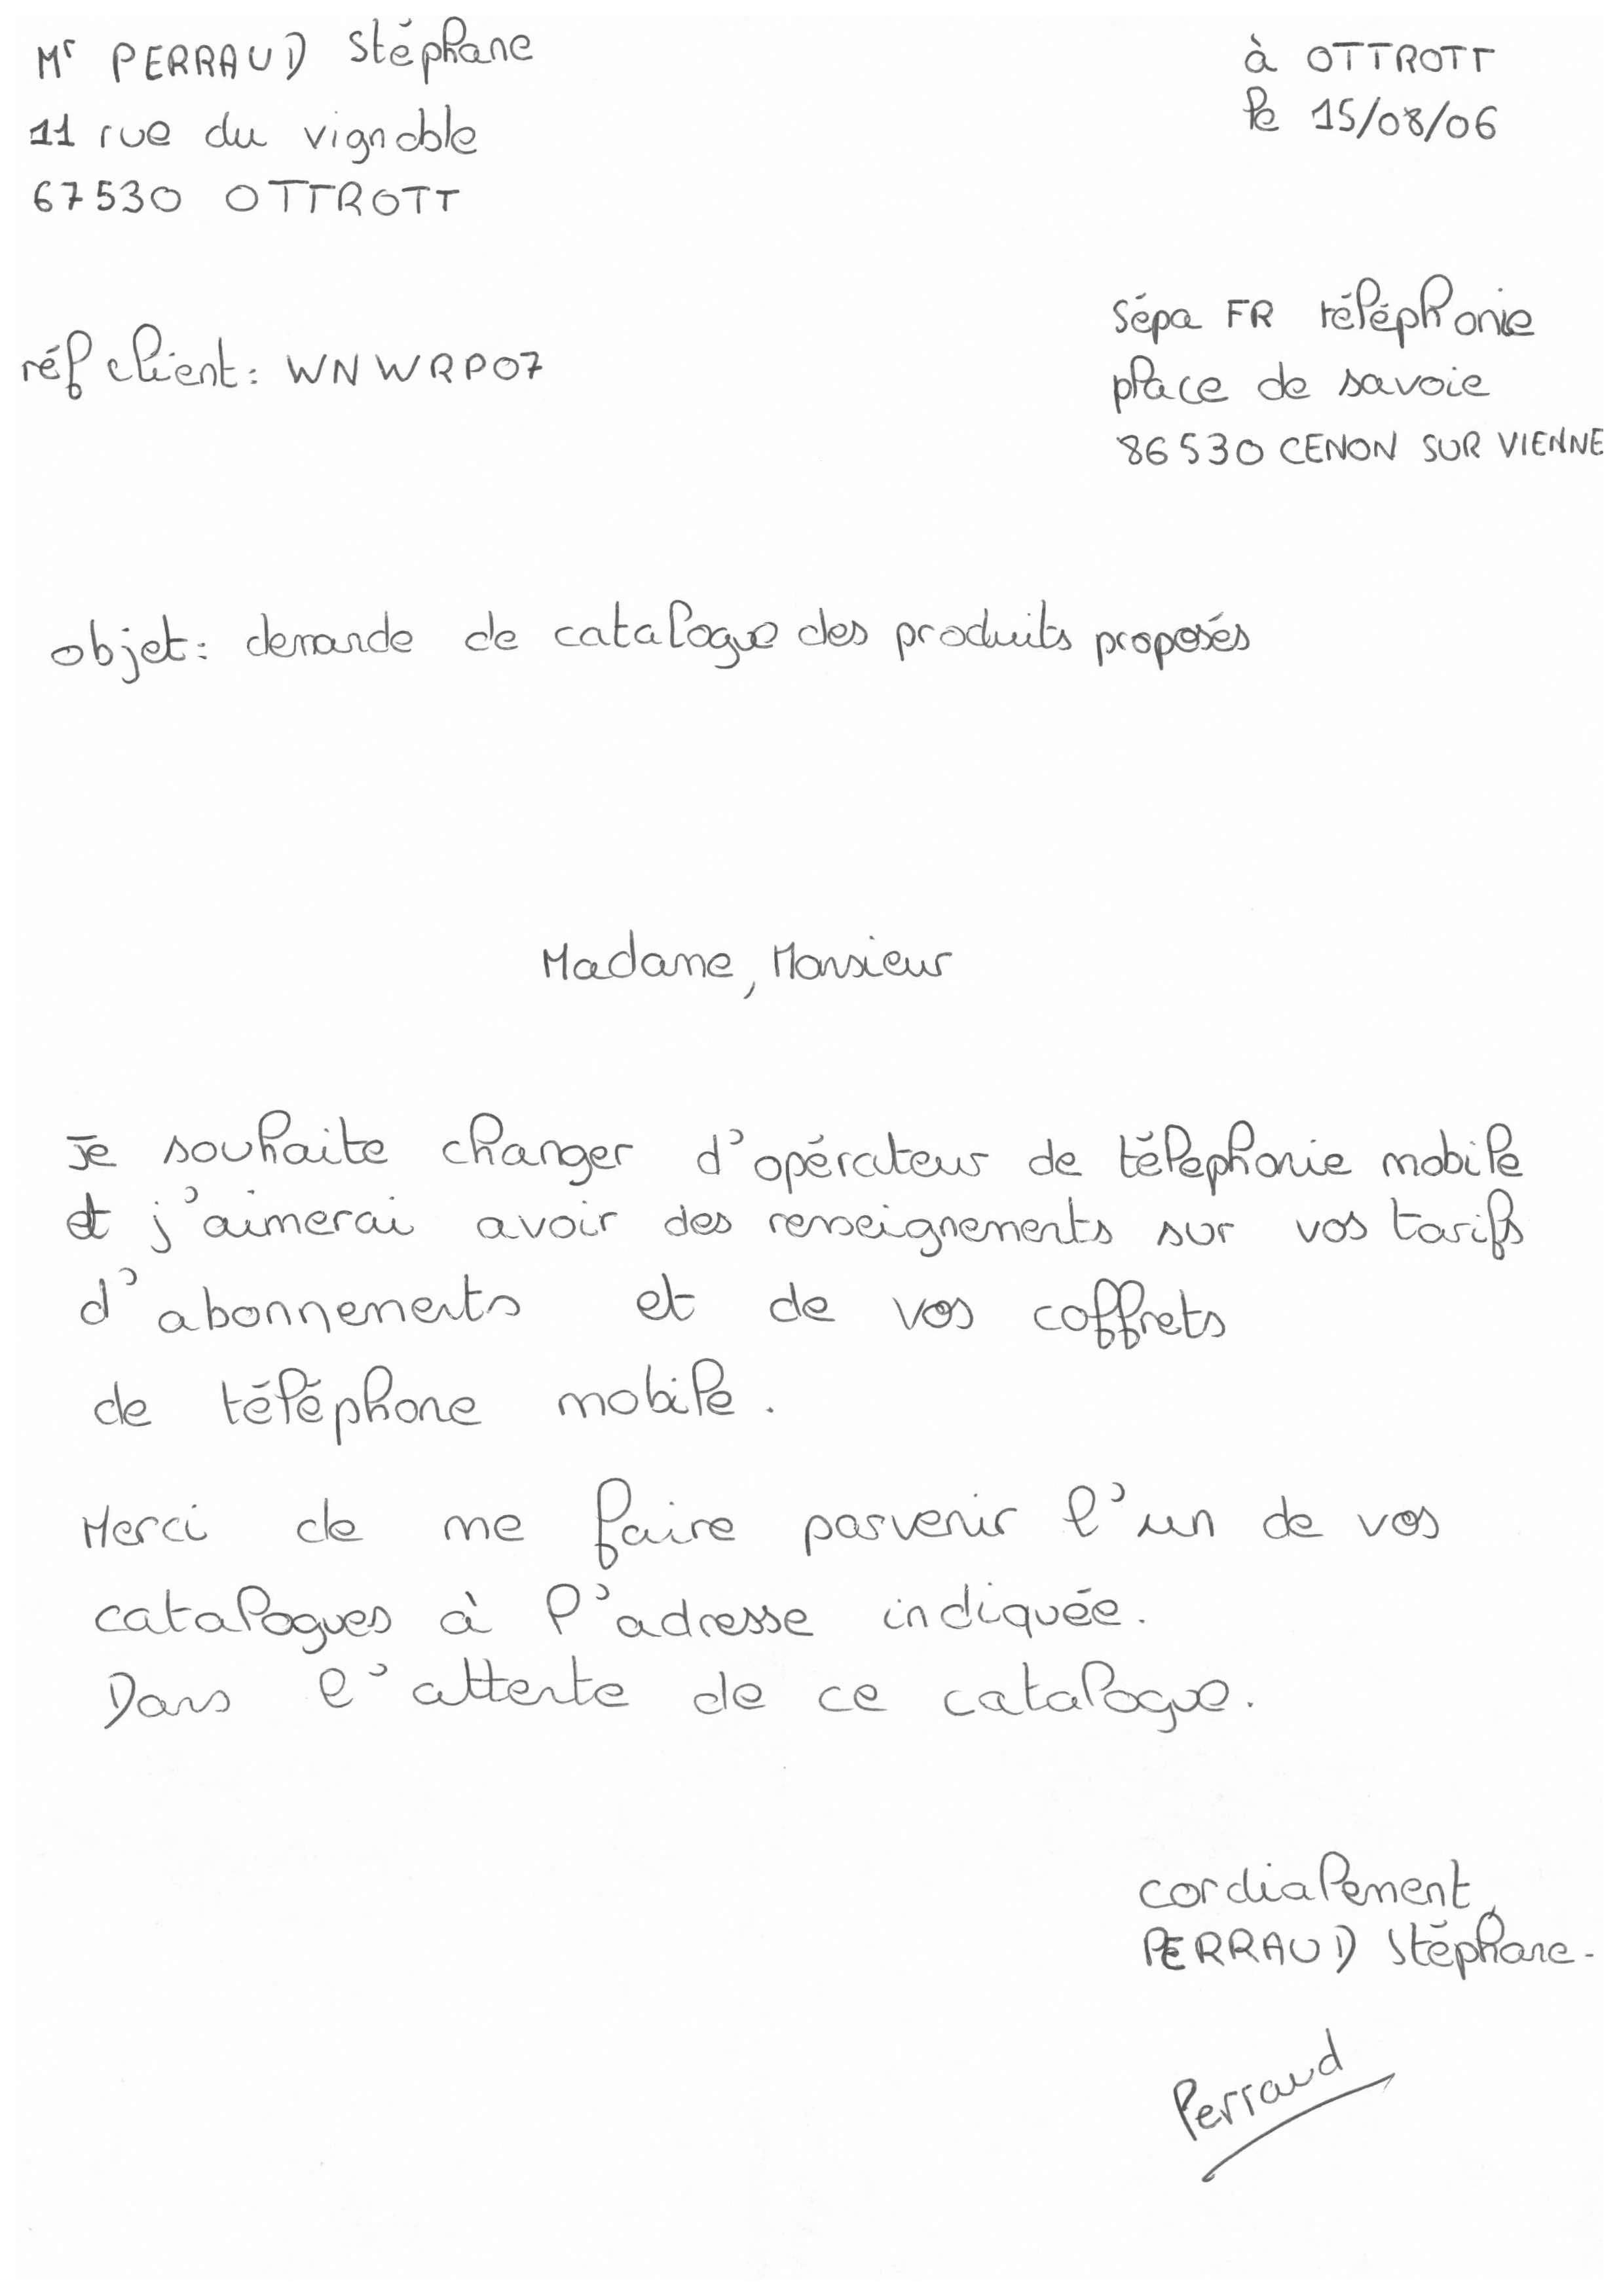 Mr PERRAUD Stéphane
11 rue du vignoble
67530 OTTROTT
à OTTROTT
le 15/08/06
Sépa FR téléphonie
place de savoie
86530 CENON SUR VIENNE
réf client : WNWRP07
objet : demande de catalogue des produits proposés
Madame, Monsieur
Je souhaite changer d'opérateur de téléphonie mobile
et j'aimerai avoir des renseignements sur vos tarifs
d'abonnements et de vos coffrets
de téléphone mobile.
Merci de me faire parvenir l'un de vos
catalogues à l'adresse indiquée.
Dans l'attente de ce catalogue.
cordialement,
PERRAUD Stéphane.
Perraud